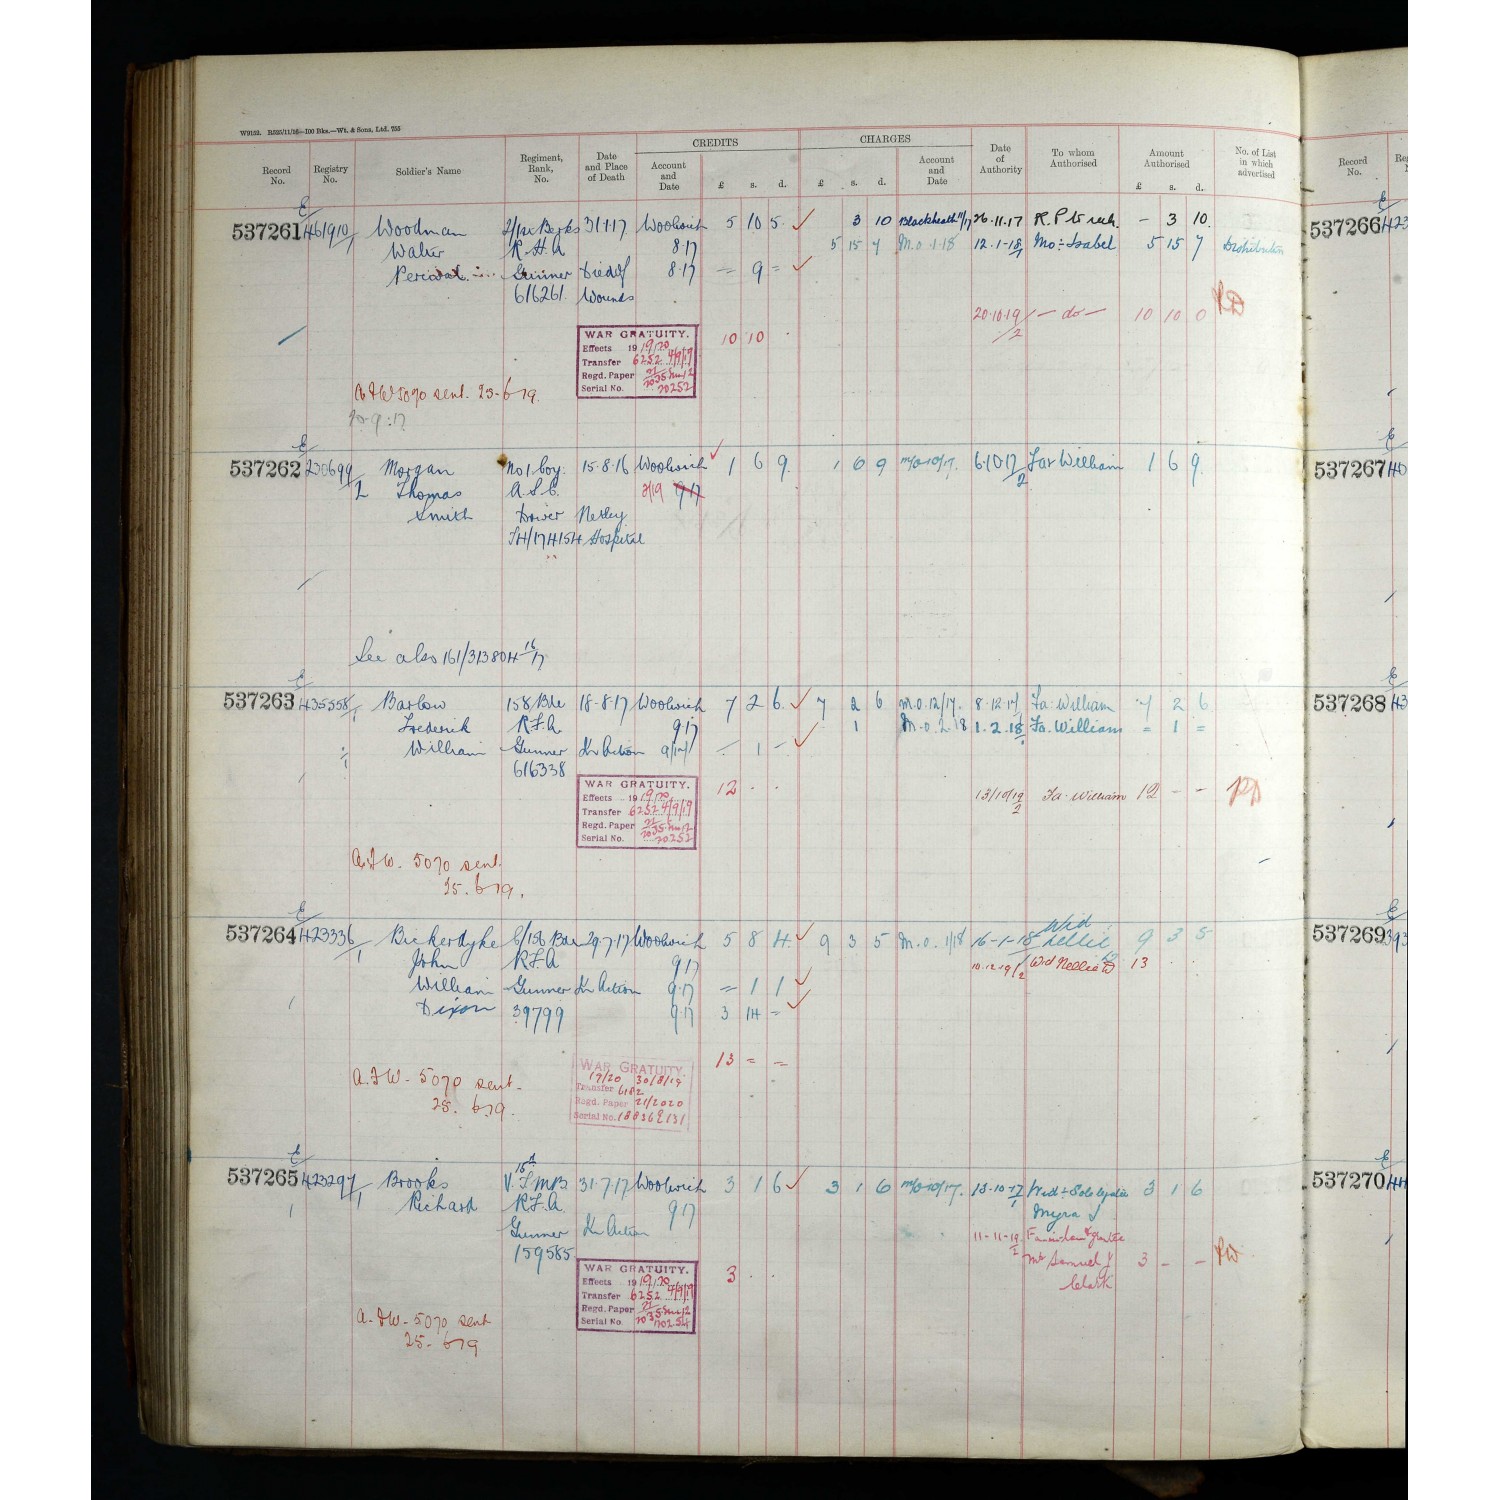 W9152. R525/11/16—100 Bks.—Wt. & Sons, Ltd. 755
CREDITS CHARGES
Record No. Registry No. Soldier's Name Regiment, Rank, No. Date and Place of Death Account and Date £ s. d. £ s. d. Account and Date Date of Authority To whom Authorised Amount Authorised £ s. d. No. of List in which advertised Record No.
537261 E/461910/1 Woodman Berks 31.1.17 Woolwich 5 10 5 3 10 Blackheath 11/17 26.11.17 R.P. - 3 10
Walter R.H.A 8.17 5 15 7 M.O. 1.18 12.1.18/1 Mo: Isabel 5 15 7 Distribution
Percival Gunner Died of 8.17 = 9 =
616261 Wounds
20.10.19/2 - do - 10 10 0
WAR GRATUITY. 10 10
Effects 1919/20
Transfer 6252 4/9/19
Regd. Paper
Serial No. 70252
A.F.W 5070 sent. 23-6-19.
20.9.17
537262 E/230699/2 Morgan No 1 Coy. 15.8.16 Woolwich 1 6 9 1 6 9 M/O 10/17. 6.10.17/2 Far William 1 6 9
Thomas A.S.C. 2/19 9.17
Smith Driver Netley
T4/174154 Hospital
See also 161/313804 16/17
537263 E/435558/1 Barlow 158 Bde 18-8-17 Woolwich 7 2 6 7 2 6 M.O. 12/17. 8.12.17/1 Fa: William 7 2 6
Frederick R.F.A. 9.17 1 M.O. 2.18 1.2.18/1 Fa. William = 1 =
William Gunner K in Action 9/17 - 1 -
616338
WAR GRATUITY. 12 . . 13/10/19/2 Fa. William 12 - -
Effects 1919/20
Transfer 6252 4/9/19
Regd. Paper
Serial No. 70252
A.F.W. 5070 sent.
25.6.19.
537264 E/423336/1 Bickerdyke C/156 Bde 29.7.17 Woolwich 5 8 4 9 3 5 M.O. 1/18 16-1-18 Wid: Nellie 9 3 5
John R.F.A 9.17 10.12.19/2 Wid Nellie W 13 . .
William Gunner K in Action 9.17 = 1 1
Dixon 39799 9.17 3 14 =
WAR GRATUITY. 13 = =
19/20 30/8/19
Transfer 6182
Regd. Paper 21/2020
Serial No.
A.F.W. 5070 sent.
25.6.19.
537265 E/423297/1 Brooks 31.7.17 Woolwich 3 1 6 3 1 6 M/O 10/17. 18.10.17/1 Wid: Sole legatee 3 1 6
Richard R.F.A. 9.17 Myra J
Gunner K in Action 11-11-19
159585 Mr Samuel J 3 - -
Clark
WAR GRATUITY. 3 . .
Effects 1919/20
Transfer 6252 4/9/19
Regd. Paper
Serial No. 70254
A.F.W. 5070 sent
25-6-19
537266
537267
537268
537269
537270